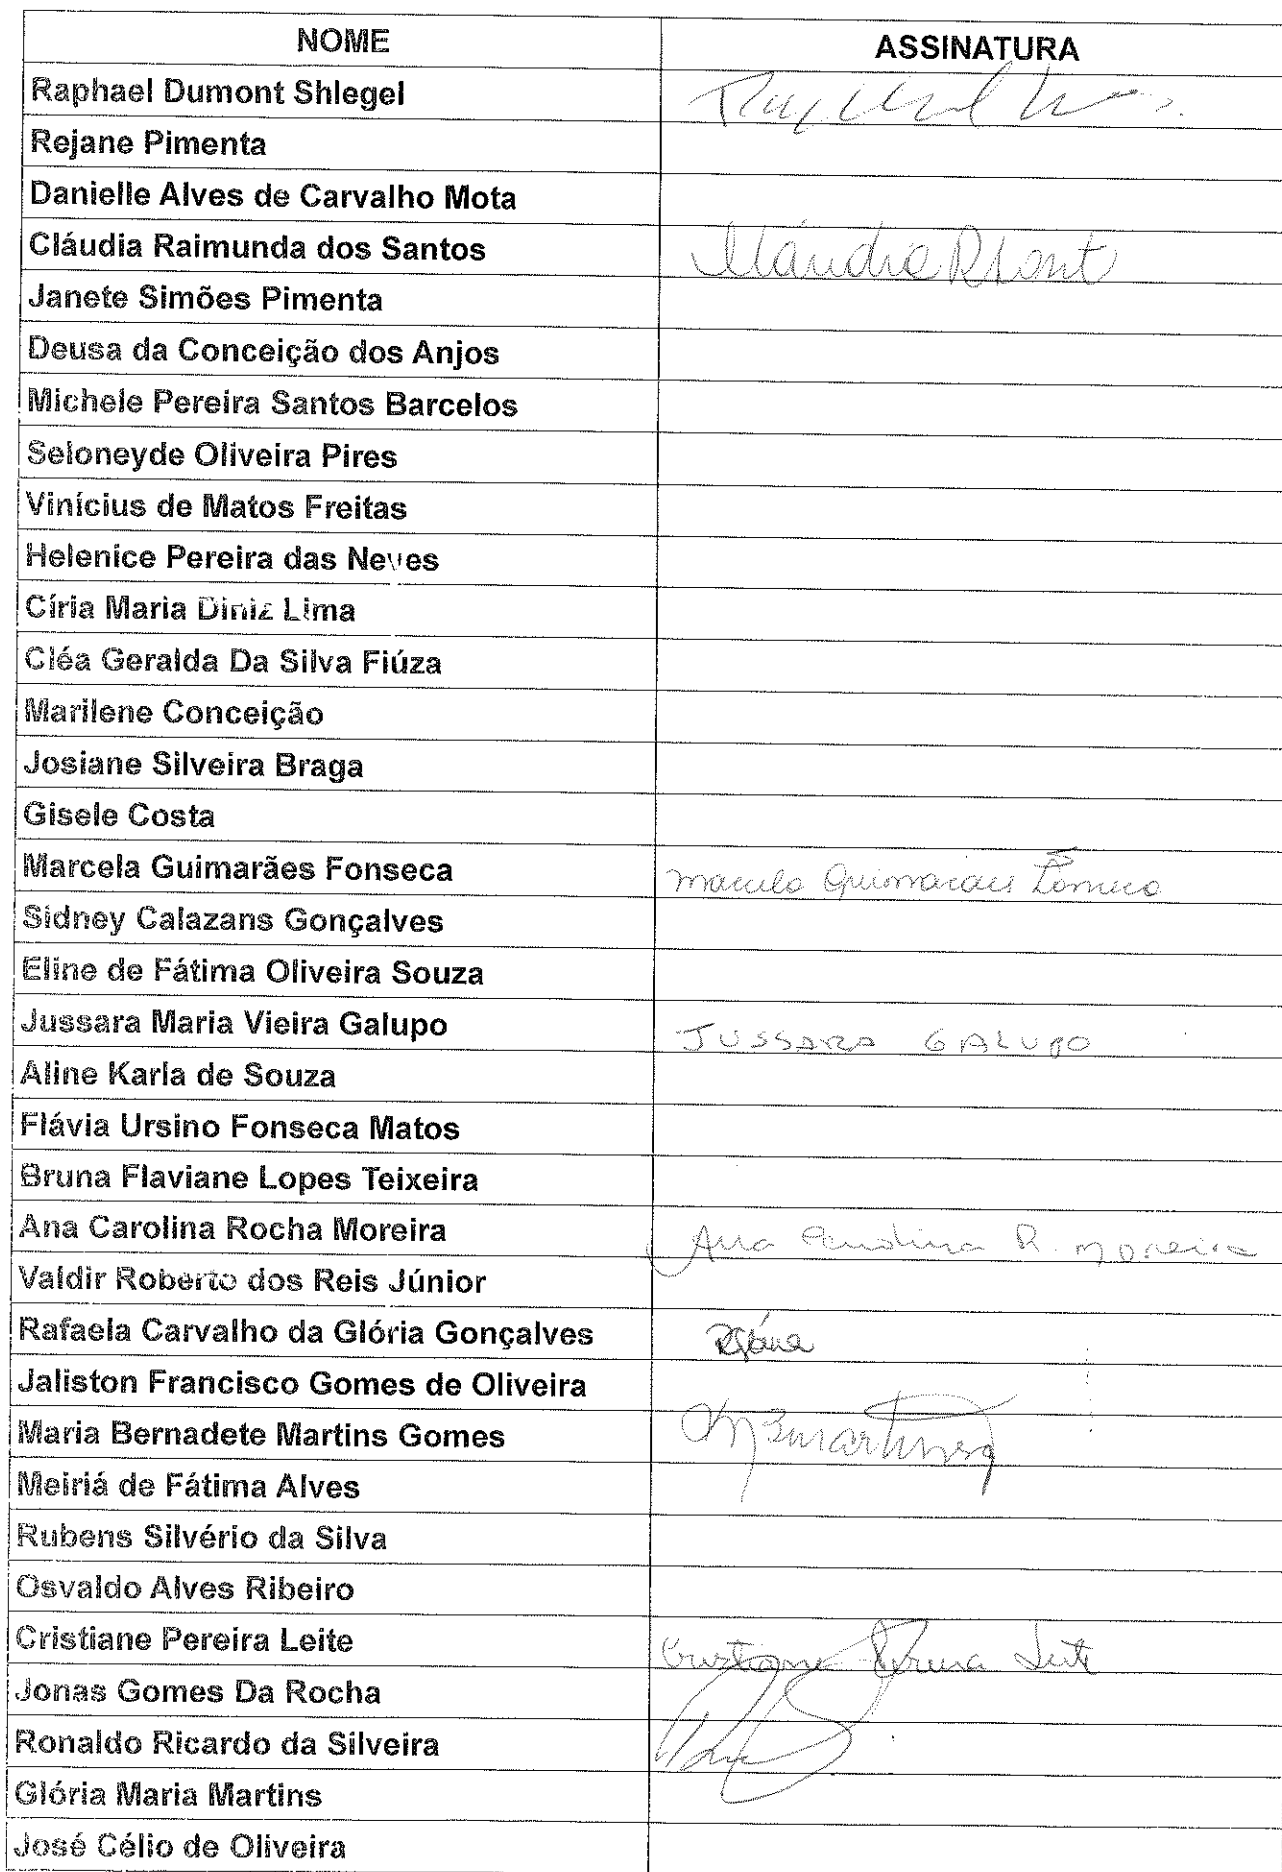 NOME ASSINATURA
Raphael Dumont Shlegel
Rejane Pimenta
Danielle Alves de Carvalho Mota
Cláudia Raimunda dos Santos Cláudia RSant
Janete Simões Pimenta
Deusa da Conceição dos Anjos
Michele Pereira Santos Barcelos
Seloneyde Oliveira Pires
Vinícius de Matos Freitas
Helenice Pereira das Neves
Círia Maria Diniz Lima
Cléa Geralda Da Silva Fiúza
Marilene Conceição
Josiane Silveira Braga
Gisele Costa
Marcela Guimarães Fonseca Marcela Guimarães Fonseca
Sidney Calazans Gonçalves
Eline de Fátima Oliveira Souza
Jussara Maria Vieira Galupo JUSSARA GALUPO
Aline Karla de Souza
Flávia Ursino Fonseca Matos
Bruna Flaviane Lopes Teixeira
Ana Carolina Rocha Moreira Ana Carolina R. Moreira
Valdir Roberto dos Reis Júnior
Rafaela Carvalho da Glória Gonçalves
Jaliston Francisco Gomes de Oliveira
Maria Bernadete Martins Gomes
Meiriá de Fátima Alves
Rubens Silvério da Silva
Osvaldo Alves Ribeiro
Cristiane Pereira Leite Cristiane Pereira Leite
Jonas Gomes Da Rocha
Ronaldo Ricardo da Silveira
Glória Maria Martins
José Célio de Oliveira